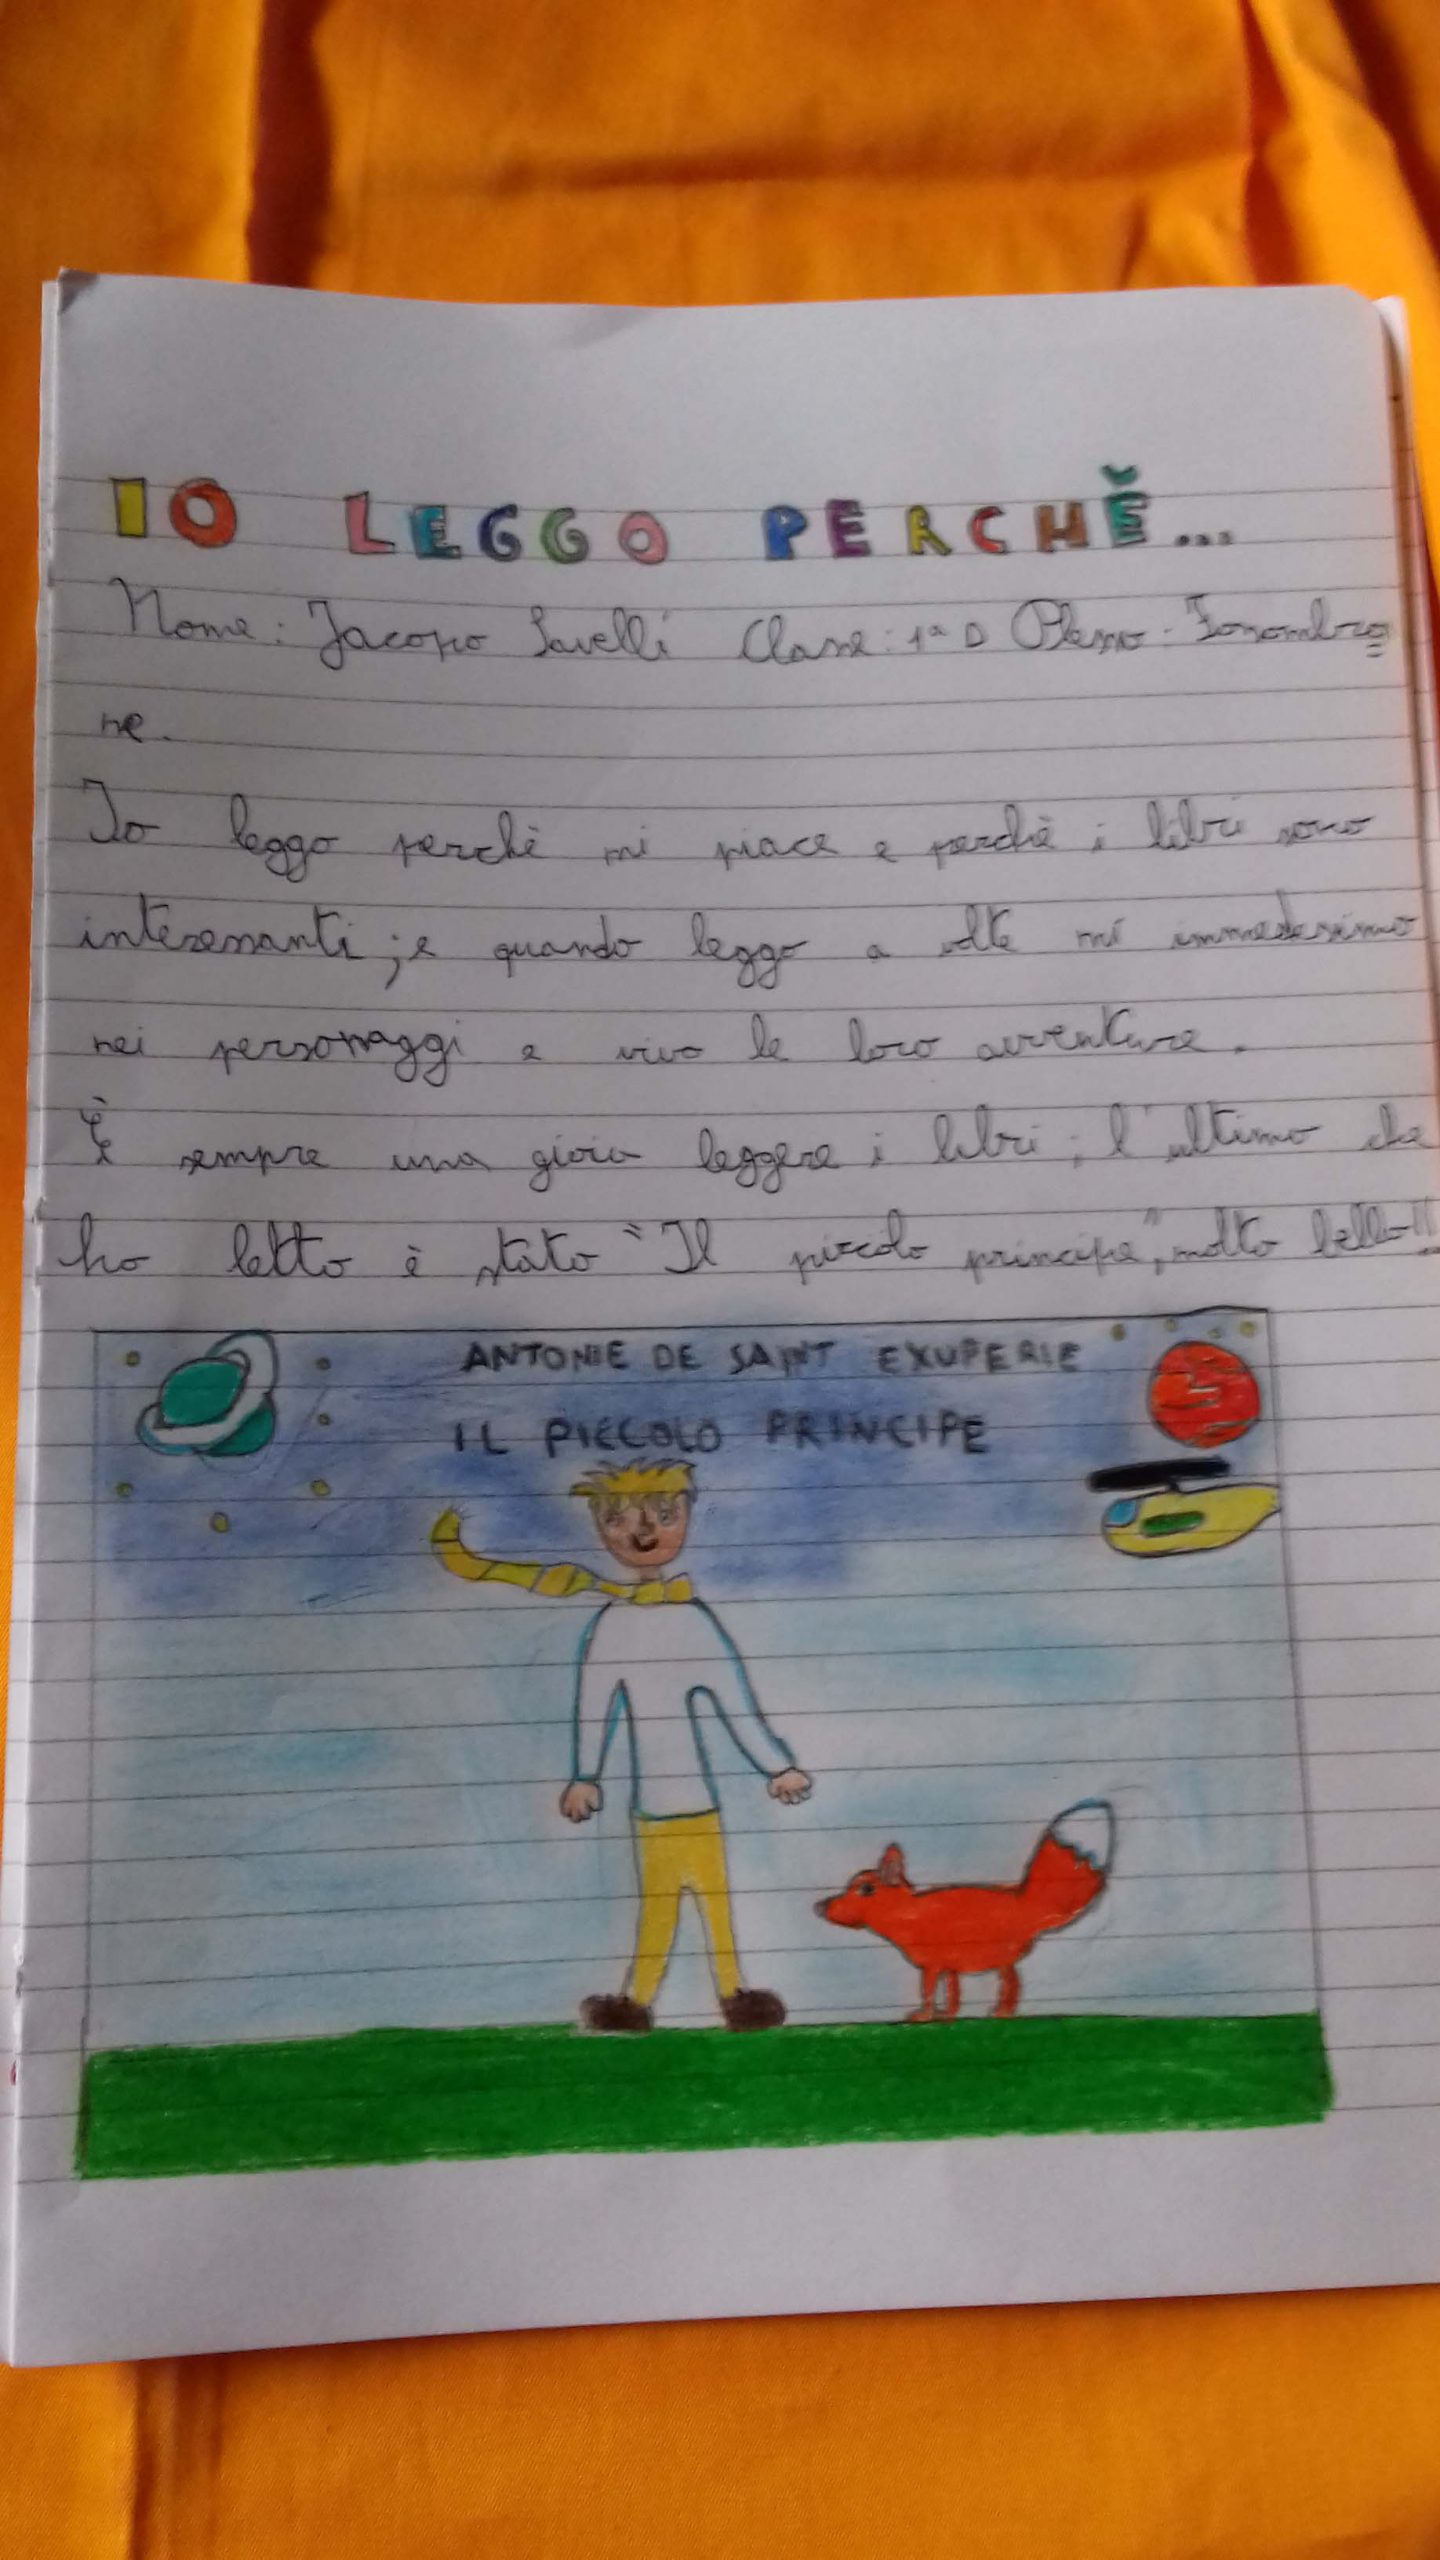 IO LEGGO PERCHĔ...
Nome: Jacopo Savelli Classe: 1ª D Plesso: Fonombro
ne.
Io leggo perchè mi piace e perchè i libri sono
interessanti; e quando leggo a volte mi immedesimo
nei personaggi e vivo le loro avventure.
È sempre una gioia leggere i libri; l'ultimo che
ho letto è stato "Il piccolo principe", molto bello!!
ANTONIE DE SAINT EXUPERIE
IL PICCOLO PRINCIPE